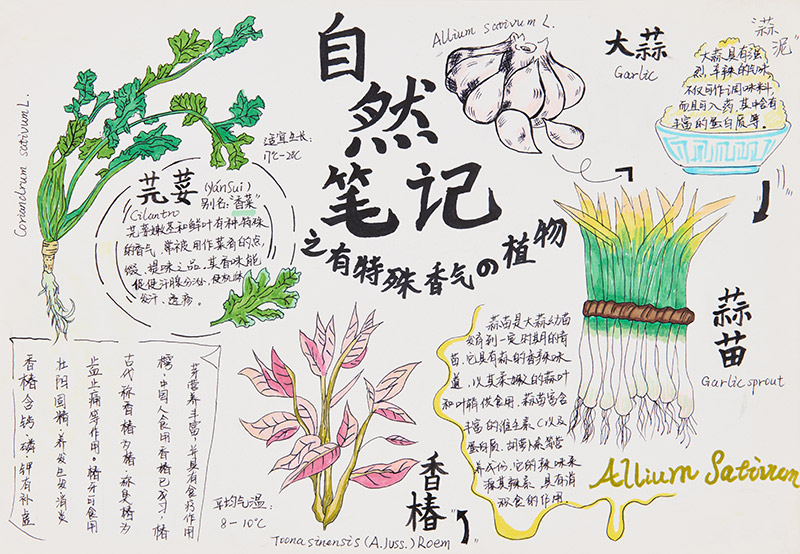 自
然
笔记
之有特殊香气の植物
Coriandrum sativum L.
适宜生长:
17℃-20℃
芫荽 (yánsuī)
别名:"香菜"
Cilantro
芫荽嫩茎和鲜叶有种特殊
的香气,常被用作菜肴的点
缀、提味之品。其香味能
促使汗腺分泌,
发汗、透疹。
Allium sativum L.
大蒜
Garlic
"蒜
泥"
大蒜具有强
烈、辛辣的气味
不仅可作调味料,
而且可入药,其中含有
丰富的蛋白质等。
蒜
苗
Garlic sprout
蒜苗是大蒜幼苗
发育到一定时期的青
苗,它具有蒜的香辣味
道,以其柔嫩的蒜叶
和叶鞘供食用。蒜苗富含
丰富的维生素C以及
蛋白质、胡萝卜素等营
养成份,它的辣味来
源其辣素,具有消
积食的作用。
Allium Sativum
香
椿
Toona sinensis (A. Juss.) Roem
平均气温:
8-10℃
芽营养丰富,并具有食疗作用
樗,中国人食用香椿已成习,椿
古代称香椿为椿,称臭椿为
血止痛等作用。椿芽可食用
壮阳固精、养发生发、消炎
香椿含钙、磷、钾、有补虚